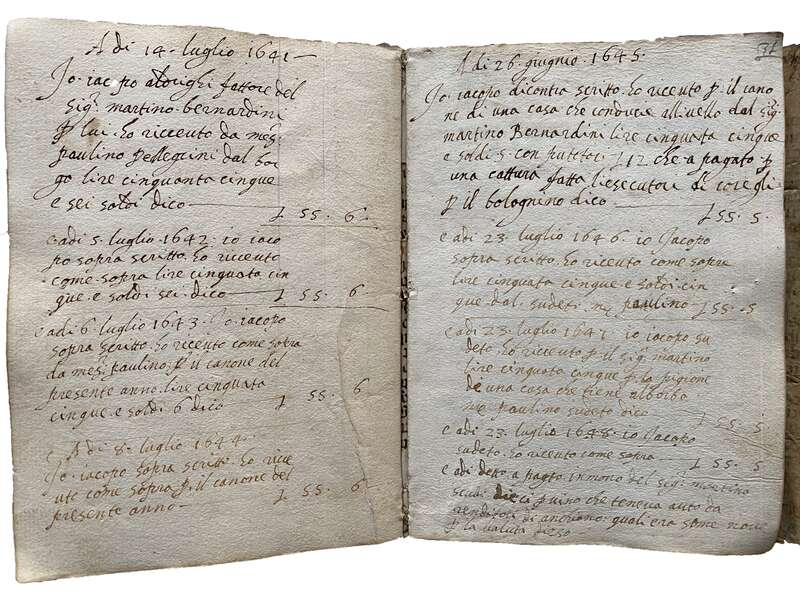 A di 14 luglio 1641
Io iac po
fattore del
sig.r martino bernardini
p lui ho riceuto da mes.
paulino pellegrini dal bor
go lire cinquanta cinque
e sei soldi dico
L 55 6
e adi 5 luglio 1642 io iaco
po sopra scritto ho riceuto
come sopra lire cinquata cin
que e soldi sei dico L 55 6
e adi 6 luglio 1643 Io iacopo
sopra scritto ho riceuto come sopra
da mes. paulino p il canone del
presente anno lire cinquata
cinque e soldi 6 dico L 55 6
e A di 8 luglio 1644
Io iacopo sopra scritto ho rice
uto come sopra p il canone del
presente anno L 55 6
A di 26 giugnio 1645
Io iacopo dicontra scritto ho riceuto p il cano
ne di una casa che conducie allivello dal sig.
martino Bernardini lire cinquata cinque
e soldi 5 con L 12 che a pagato p
una cattura fatta li esecutori di coregli
p il bolognino dico
L 55 5
e adi 23 luglio 1646 io Jacopo
sopra scritto ho riceuto come sopra
lire cinquata cinque e soldi cin
que dal sudeto paulino L 55 5
e adi 23 luglio 1647 io iacopo su
deto ho riceuto p il sig. martino
lire cinquata cinque p la pigione
de una casa che tiene alborgo
paulino sudeto dico L 55 5
e adi 23 luglio 1648 io Jacopo
sudeto ho riceuto come sopra L 55 5
e adi deto a pagto del sig. martino
scudi dieci p uino che teneua auto da
quali era some noue
p la ualuta